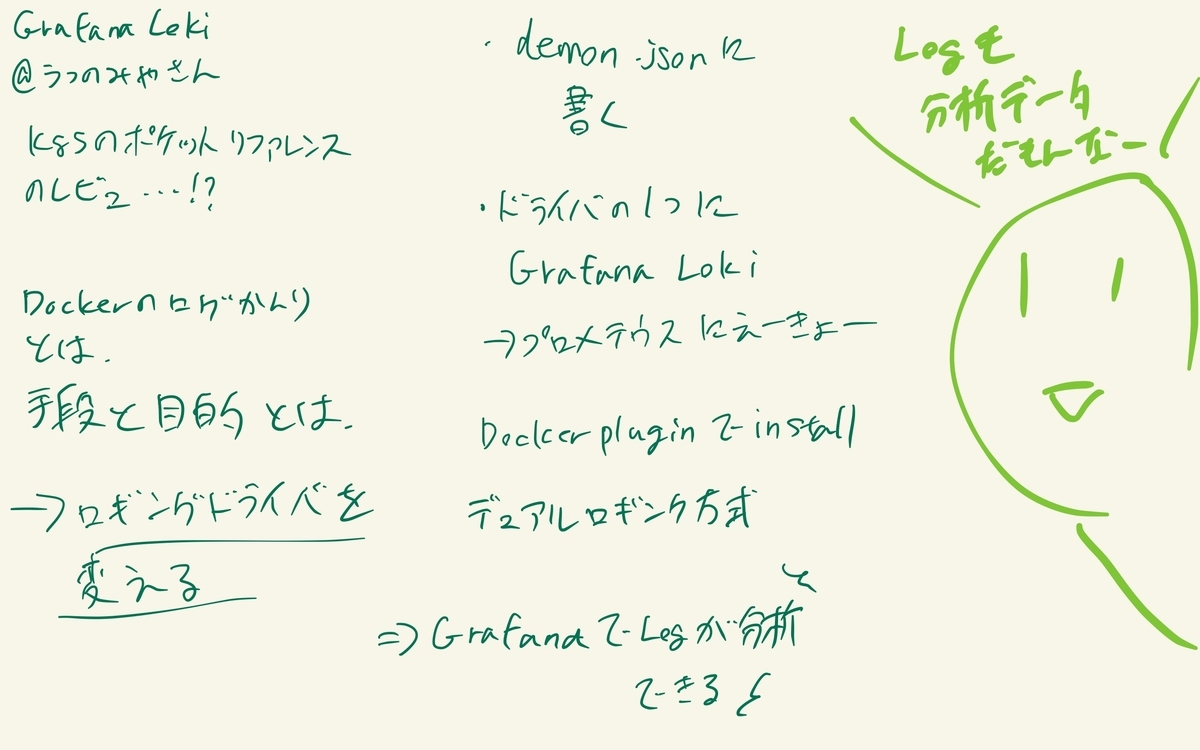 Grafana Loki
@うつのみやさん
K8Sのポケットリファレンス
のレビュ…!?
Dockerのログかんり
とは.
手段と目的とは.
→ロギングドライバを
変える
・demon.jsonに
書く
・ドライバの1つに
Grafana Loki
→プロメテウスにえーきょー
Docker pluginでinstall
デュアルロギング方式
⇒GrafanaでLogが分析
できる
Logも
分析データ
だもんなー